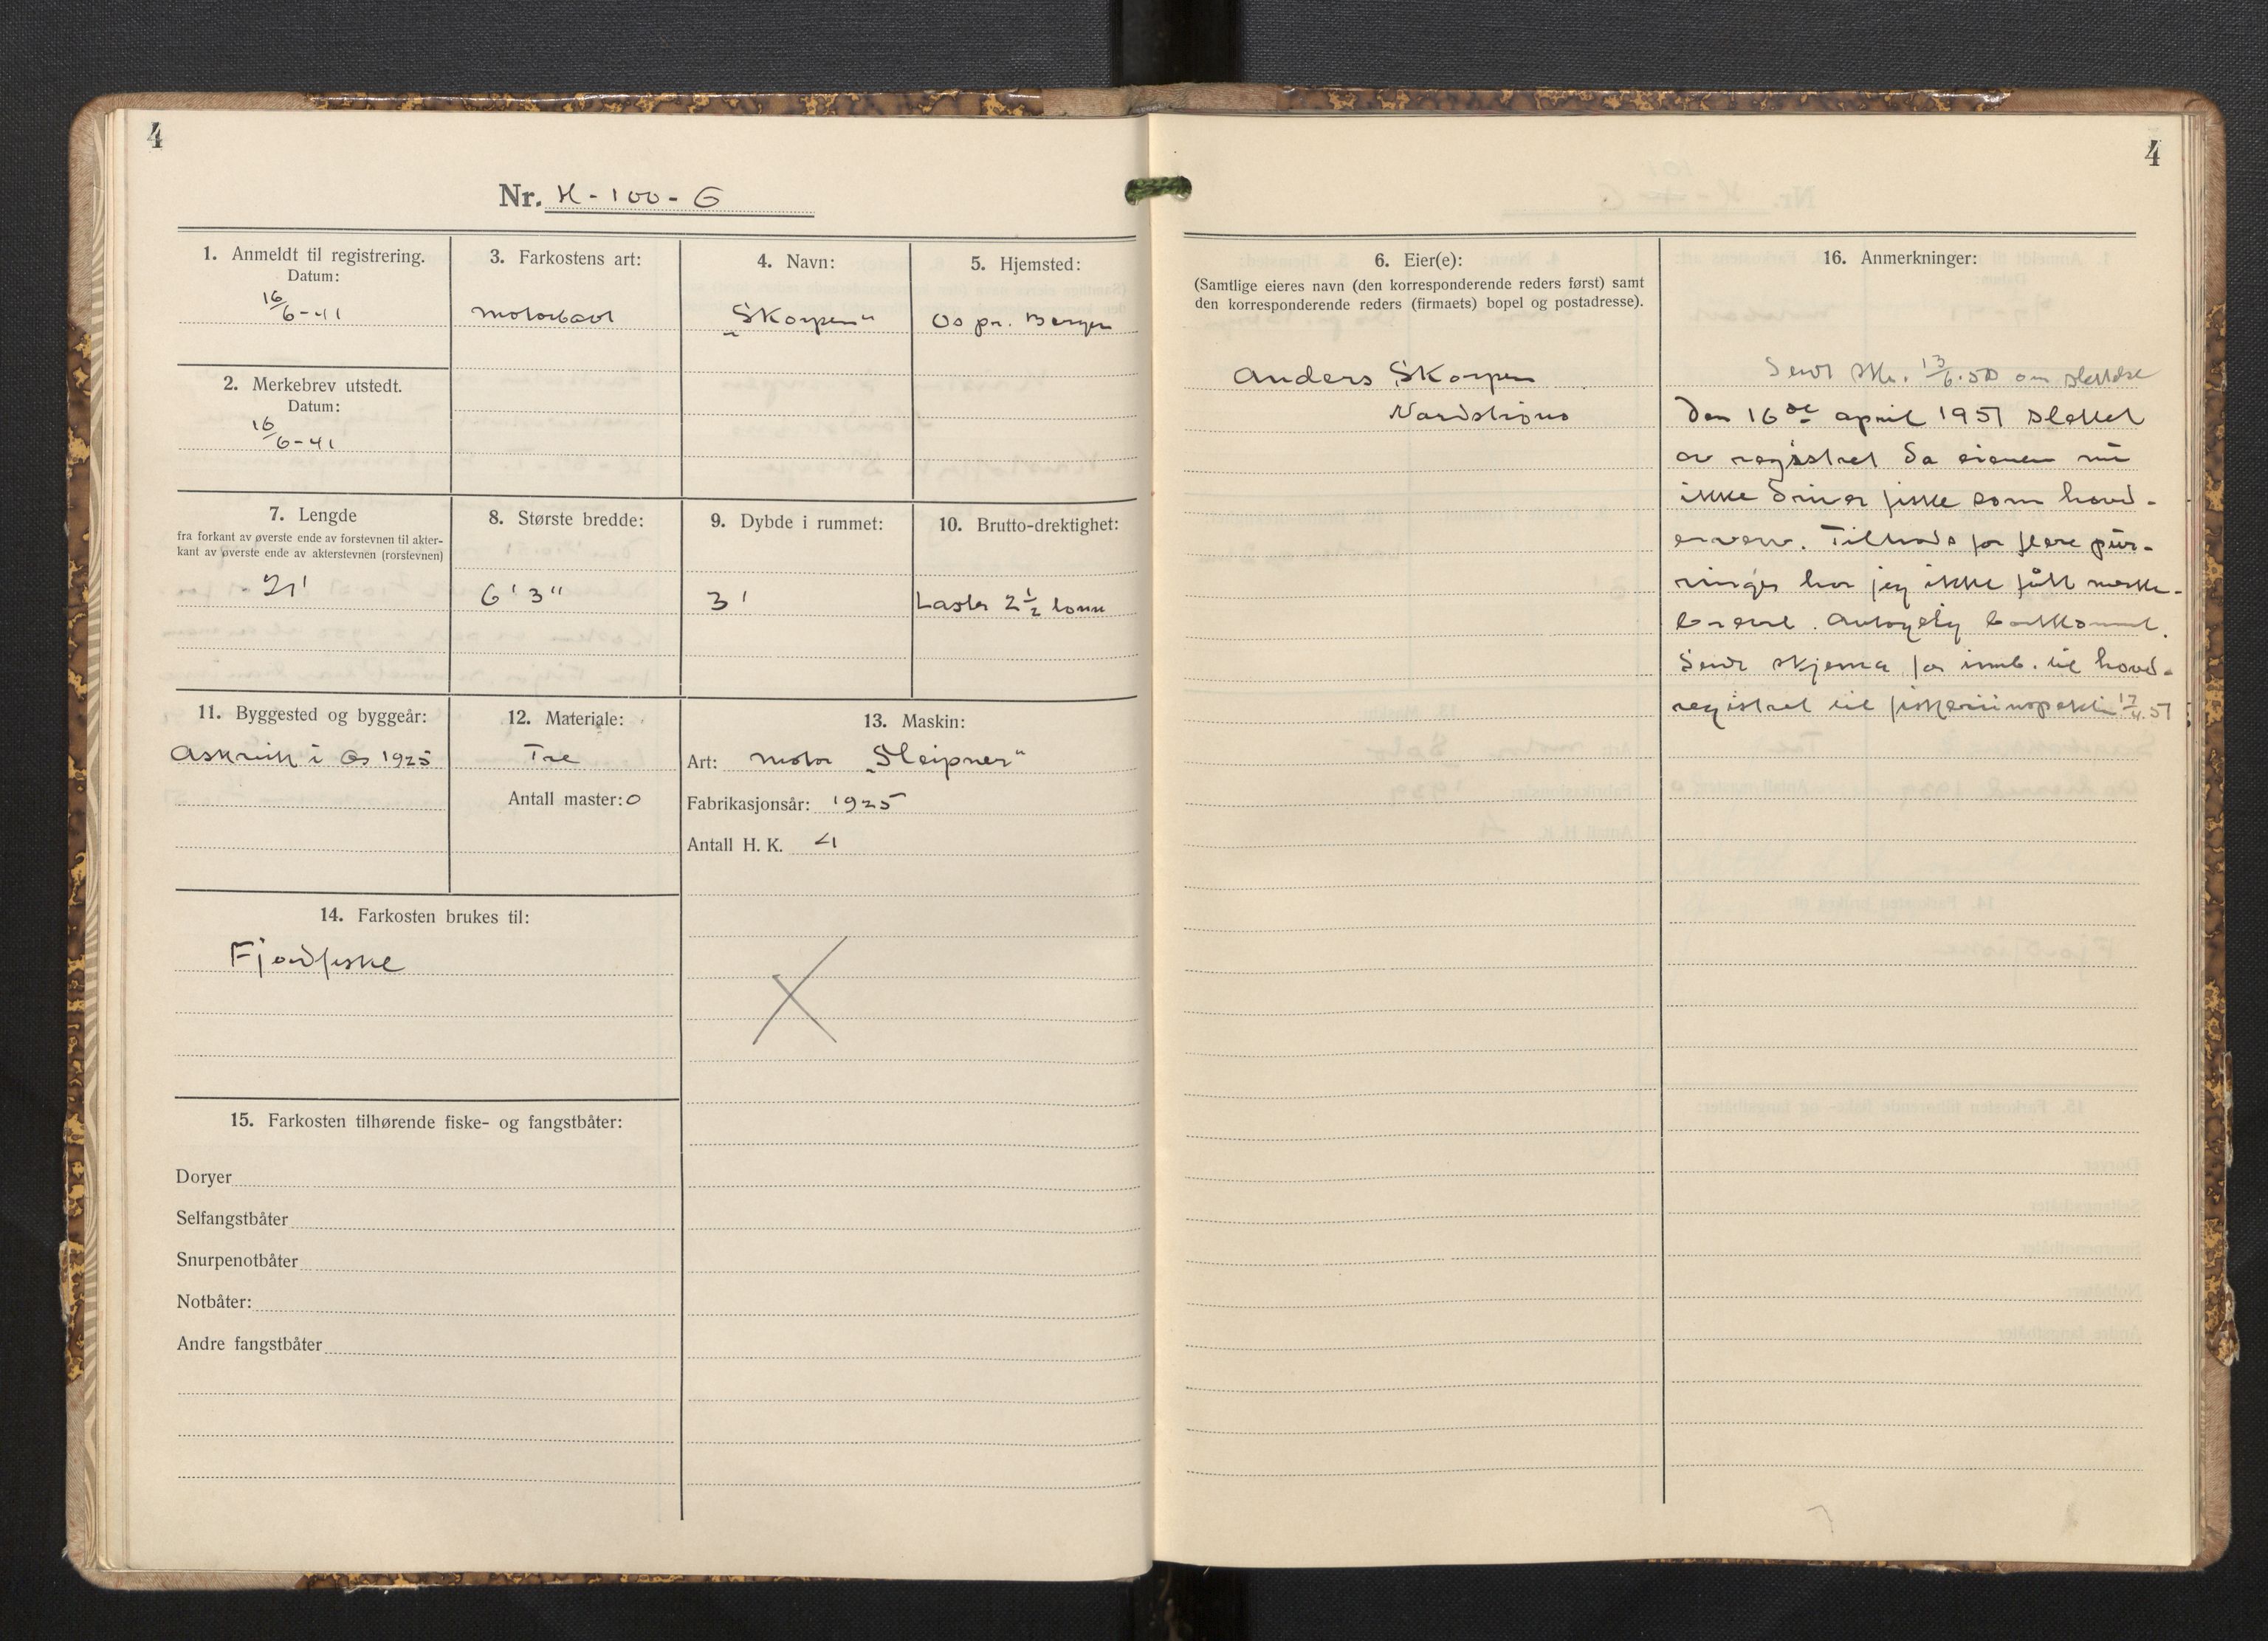 4
Nr. H-100-G
1. Anmeldt til registrering.
Datum:
16/6-41
2. Merkebrev utstedt.
Datum:
16/6-41
3. Farkostens art:
motorbaat
4. Navn:
„Skorpen"
5. Hjemsted:
Os pr. Bergen
7. Lengde
fra forkant av øverste ende av forstevnen til akter-
kant av øverste ende av akterstevnen (rorstevnen)
21'
8. Største bredde:
6'3"
9. Dybde i rummet:
3'
10. Brutto-drektighet:
Laster 2½ tonn
11. Byggested og byggeår:
Askvik i Os 1925
12. Materiale:
Tre
Antall master: 0
13. Maskin:
Art: motor „Sleipner"
Fabrikasjonsår: 1925
Antall H. K. 4
14. Farkosten brukes til:
Fjordfiske
15. Farkosten tilhørende fiske- og fangstbåter:
Doryer
Selfangstbåter
Snurpenotbåter
Notbåter:
Andre fangstbåter
4
6. Eier(e):
(Samtlige eieres navn (den korresponderende reders først) samt
den korresponderende reders (firmaets) bopel og postadresse).
Anders Skorpen
Nordstrøno
16. Anmerkninger:
Sendt skr. 13/6.50 om slettelse
Den 16de april 1951 slettet
av registret da eieren nu
ikke driver fiske som hoved-
erverv. Tiltrods for flere pur-
ringer har jeg ikke fått merke-
brevet. Antagelig bortkommet.
Sendt skjema for innb. til hoved-
registret til fiskeriinspektn 17/4.51